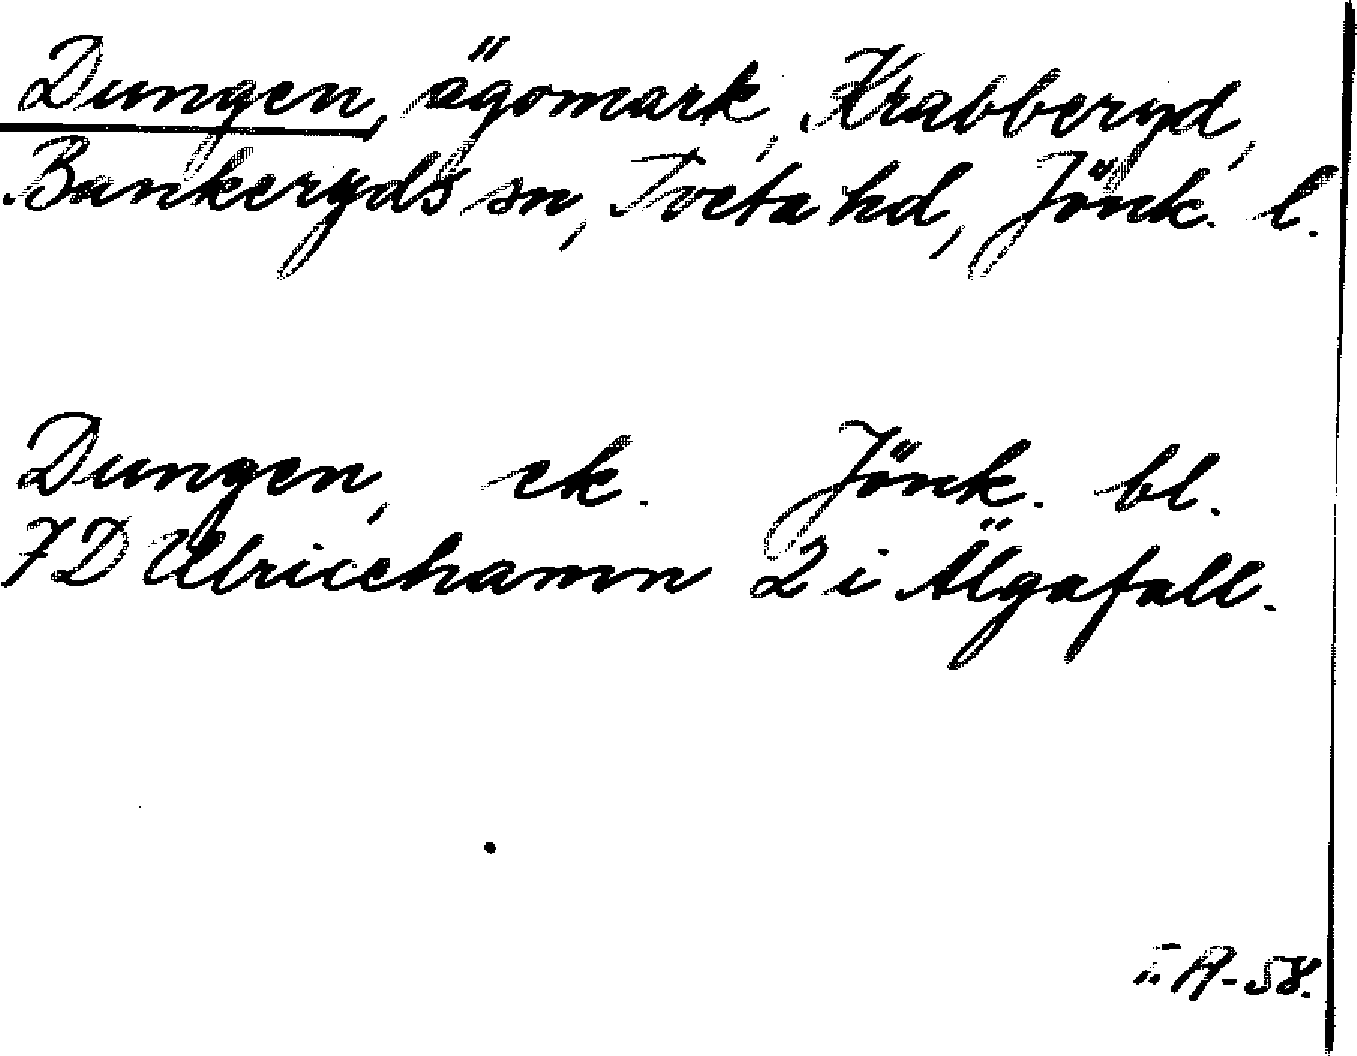 Dungen, ägomark, Krabberyd,
Bankeryds sn, Tveta hd, Jönk. l.
Dungen, ek. Jönk. bl.
7D Ulricehamn 2 i Älgafall.
A-58.